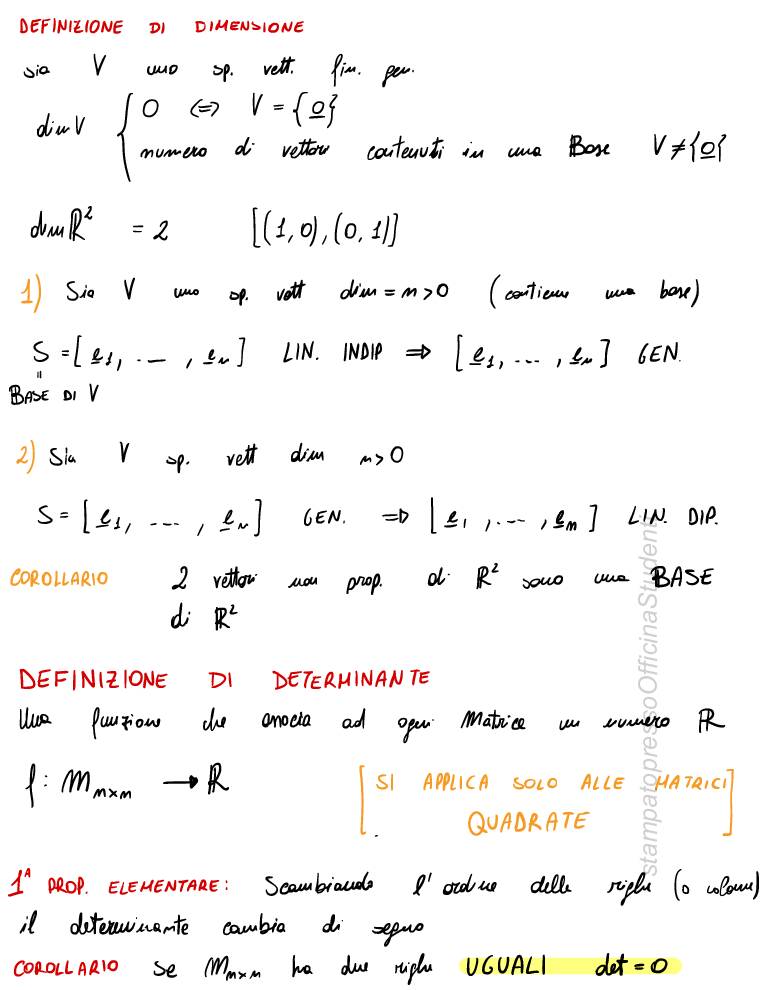 DEFINIZIONE DI DIMENSIONE
sia V uno sp. vett. fin. gen.
dim V { 0 <=> V = {0}
numero di vettori contenuti in una Base V ≠ {0}
dim ℝ² = 2 [(1,0),(0,1)]
1) Sia V uno sp. vett dim = n > 0 (contiene una base)
S = [e1, ... , en] LIN. INDIP => [e1, ... , en] GEN.
=
BASE DI V
2) Sia V sp. vett dim n > 0
S = [e1, ... , en] GEN. => [e1, ... , en] LIN. DIP.
COROLLARIO 2 vettori non prop. di ℝ² sono una BASE
di ℝ²
DEFINIZIONE DI DETERMINANTE
Una funzione che associa ad ogni Matrice un numero ℝ
f: Mn×n → ℝ [SI APPLICA SOLO ALLE MATRICI
QUADRATE]
1ª PROP. ELEMENTARE: Scambiando l'ordine delle righe (o colonne)
il determinante cambia di segno
COROLLARIO Se Mn×n ha due righe UGUALI det = 0
stampatopressoOfficinaStudent